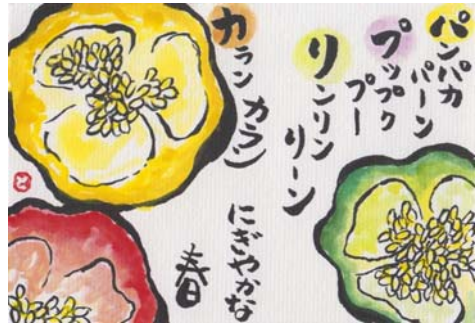 パンパカ
パーン
プップク
プー
リンリン
リーン
カランカラン
にぎやかな
春
と